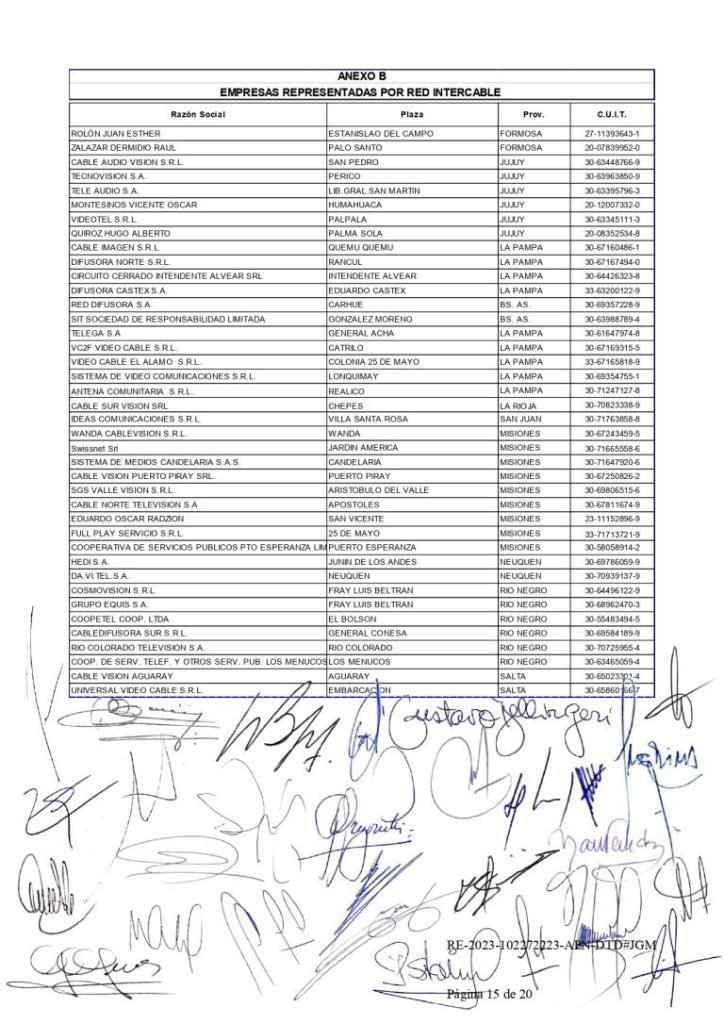 ANEXO B
EMPRESAS REPRESENTADAS POR RED INTERCABLE
Razón Social Plaza Prov. C.U.I.T.
ROLÓN JUAN ESTHER ESTANISLAO DEL CAMPO FORMOSA 27-11393643-1
ZALAZAR DERMIDIO RAUL PALO SANTO FORMOSA 20-07839952-0
CABLE AUDIO VISION S.R.L. SAN PEDRO JUJUY 30-63448766-9
TECNOVISION S.A. PERICO JUJUY 30-63963850-9
TELE AUDIO S.A. LIB.GRAL.SAN MARTIN JUJUY 30-63395796-3
MONTESINOS VICENTE OSCAR HUMAHUACA JUJUY 20-12007332-0
VIDEOTEL S.R.L. PALPALA JUJUY 30-63345111-3
QUIROZ HUGO ALBERTO PALMA SOLA JUJUY 20-08352534-8
CABLE IMAGEN S.R.L. QUEMU QUEMU LA PAMPA 30-67160486-1
DIFUSORA NORTE S.R.L. RANCUL LA PAMPA 30-67167494-0
CIRCUITO CERRADO INTENDENTE ALVEAR SRL INTENDENTE ALVEAR LA PAMPA 30-64426323-8
DIFUSORA CASTEX S.A. EDUARDO CASTEX LA PAMPA 33-63200122-9
RED DIFUSORA S.A. CARHUE BS. AS. 30-69357228-9
SIT SOCIEDAD DE RESPONSABILIDAD LIMITADA GONZALEZ MORENO BS. AS. 30-63988789-4
TELEGA S.A GENERAL ACHA LA PAMPA 30-61647974-8
VC2F VIDEO CABLE S.R.L. CATRILO LA PAMPA 30-67169315-5
VIDEO CABLE EL ALAMO S.R.L. COLONIA 25 DE MAYO LA PAMPA 33-67165818-9
SISTEMA DE VIDEO COMUNICACIONES S.R.L. LONQUIMAY LA PAMPA 30-69354755-1
ANTENA COMUNITARIA S.R.L.. REALICO LA PAMPA 30-71247127-8
CABLE SUR VISION SRL CHEPES LA RIOJA 30-70823338-9
IDEAS COMUNICACIONES S.R.L. VILLA SANTA ROSA SAN JUAN 30-71763858-8
WANDA CABLEVISION S.R.L. WANDA MISIONES 30-67243459-5
Swissnet Srl JARDIN AMERICA MISIONES 30-71665558-6
SISTEMA DE MEDIOS CANDELARIA S.A.S. CANDELARIA MISIONES 30-71647920-6
CABLE VISION PUERTO PIRAY SRL. PUERTO PIRAY MISIONES 30-67250826-2
SGS VALLE VISION S.R.L. ARISTOBULO DEL VALLE MISIONES 30-69806515-6
CABLE NORTE TELEVISION S.A APOSTOLES MISIONES 30-67811674-9
EDUARDO OSCAR RADZION SAN VICENTE MISIONES 23-11152896-9
FULL PLAY SERVICIO S.R.L. 25 DE MAYO MISIONES 33-71713721-9
COOPERATIVA DE SERVICIOS PUBLICOS PTO ESPERANZA LIM PUERTO ESPERANZA MISIONES 30-58058914-2
HEDI S.A. JUNIN DE LOS ANDES NEUQUEN 30-69786059-9
DA.VI.TEL.S.A. NEUQUEN NEUQUEN 30-70939137-9
COSMOVISION S.R.L. FRAY LUIS BELTRAN RIO NEGRO 30-64496122-9
GRUPO EQUIS S.A. FRAY LUIS BELTRAN RIO NEGRO 30-68962470-3
COOPETEL COOP. LTDA EL BOLSON RIO NEGRO 30-55483494-5
CABLEDIFUSORA SUR S.R.L. GENERAL CONESA RIO NEGRO 30-69584189-9
RIO COLORADO TELEVISION S.A. RIO COLORADO RIO NEGRO 30-70725955-4
COOP. DE SERV. TELEF. Y OTROS SERV. PUB. LOS MENUCOS LOS MENUCOS RIO NEGRO 30-63465059-4
CABLE VISION AGUARAY AGUARAY SALTA
UNIVERSAL VIDEO CABLE S.R.L. EMBARCACION SALTA
Gustavo
RE-2023-102272223-APN-DTD#JGM
Página 15 de 20